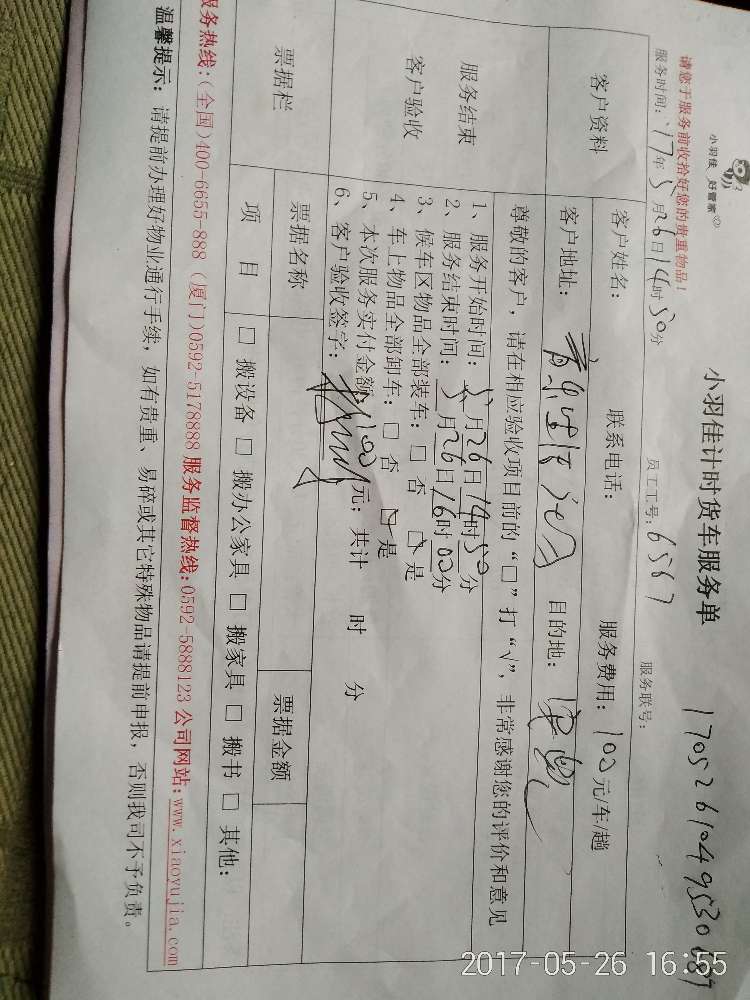 小羽佳 好管家
小羽佳计时货车服务单
170526104953068
请您于服务前收拾好您的贵重物品!
服务时间:17年5月26日14时50分 员工工号:6567 服务联号:
客户资料
客户姓名: 联系电话: 服务费用:100元/车/趟
客户地址: 目的地:
服务结束
客户验收
尊敬的客户,请在相应验收项目前的“□”打“√”,非常感谢您的评价和意见
1、服务开始时间:5月26日14时50分
2、服务结束时间:5月26日16时00分
3、候车区物品全部装车:□ 否 □ 是
4、车上物品全部卸车:□ 否 □ 是
5、本次服务实付金额:100元;共计 时 分
6、客户验收签字:
票据栏
票据名称 票据金额
项 目 □ 搬设备 □ 搬办公家具 □ 搬家具 □ 搬书 □ 其他:
服务热线:(全国)400-6655-888 (厦门)0592-5178888 服务监督热线:0592-5888123 公司网站:www.xiaoyujia.com
温馨提示:请提前办理好物业通行手续,如有贵重、易碎或其它特殊物品请提前申报,否则我司不予负责。
2017-05-26 16:55